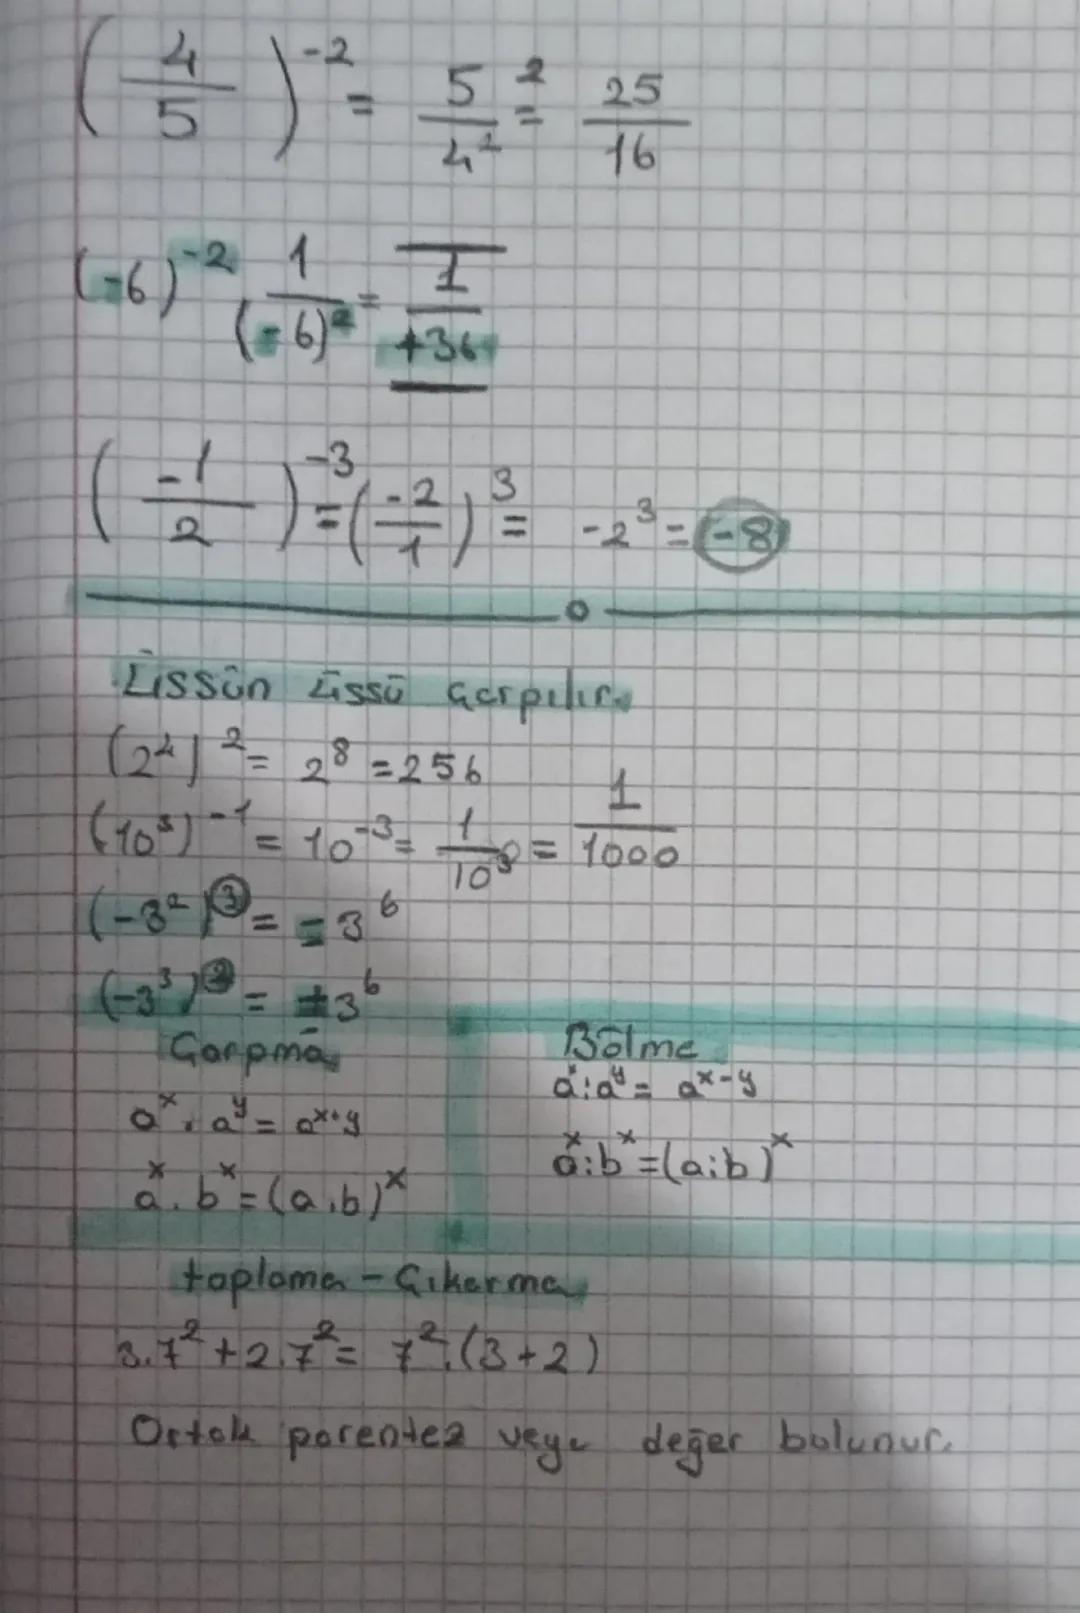 (4/5)⁻² = 5²/4² = 25/16
(-6)⁻² 1/(-6)² = 1/+36
(-1/2)⁻³ = (-2/1)³ = -2³ = -8
Üssün üssü çarpılır.
(2⁴)² = 2⁸ = 256
(10³)⁻¹ = 10⁻³ = 1/10³ = 1/1000
(-3²)³ = -3⁶
(-3³)² = +3⁶
Çarpma
aˣ . aʸ = aˣ⁺ʸ
aˣ . bˣ = (a.b)ˣ
Bölme
aˣ : aʸ = aˣ⁻ʸ
aˣ : bˣ = (a:b)ˣ
toplama - Çıkarma
3.7² + 2.7² = 7².(3+2)
Ortak parentez veya değer bulunur.